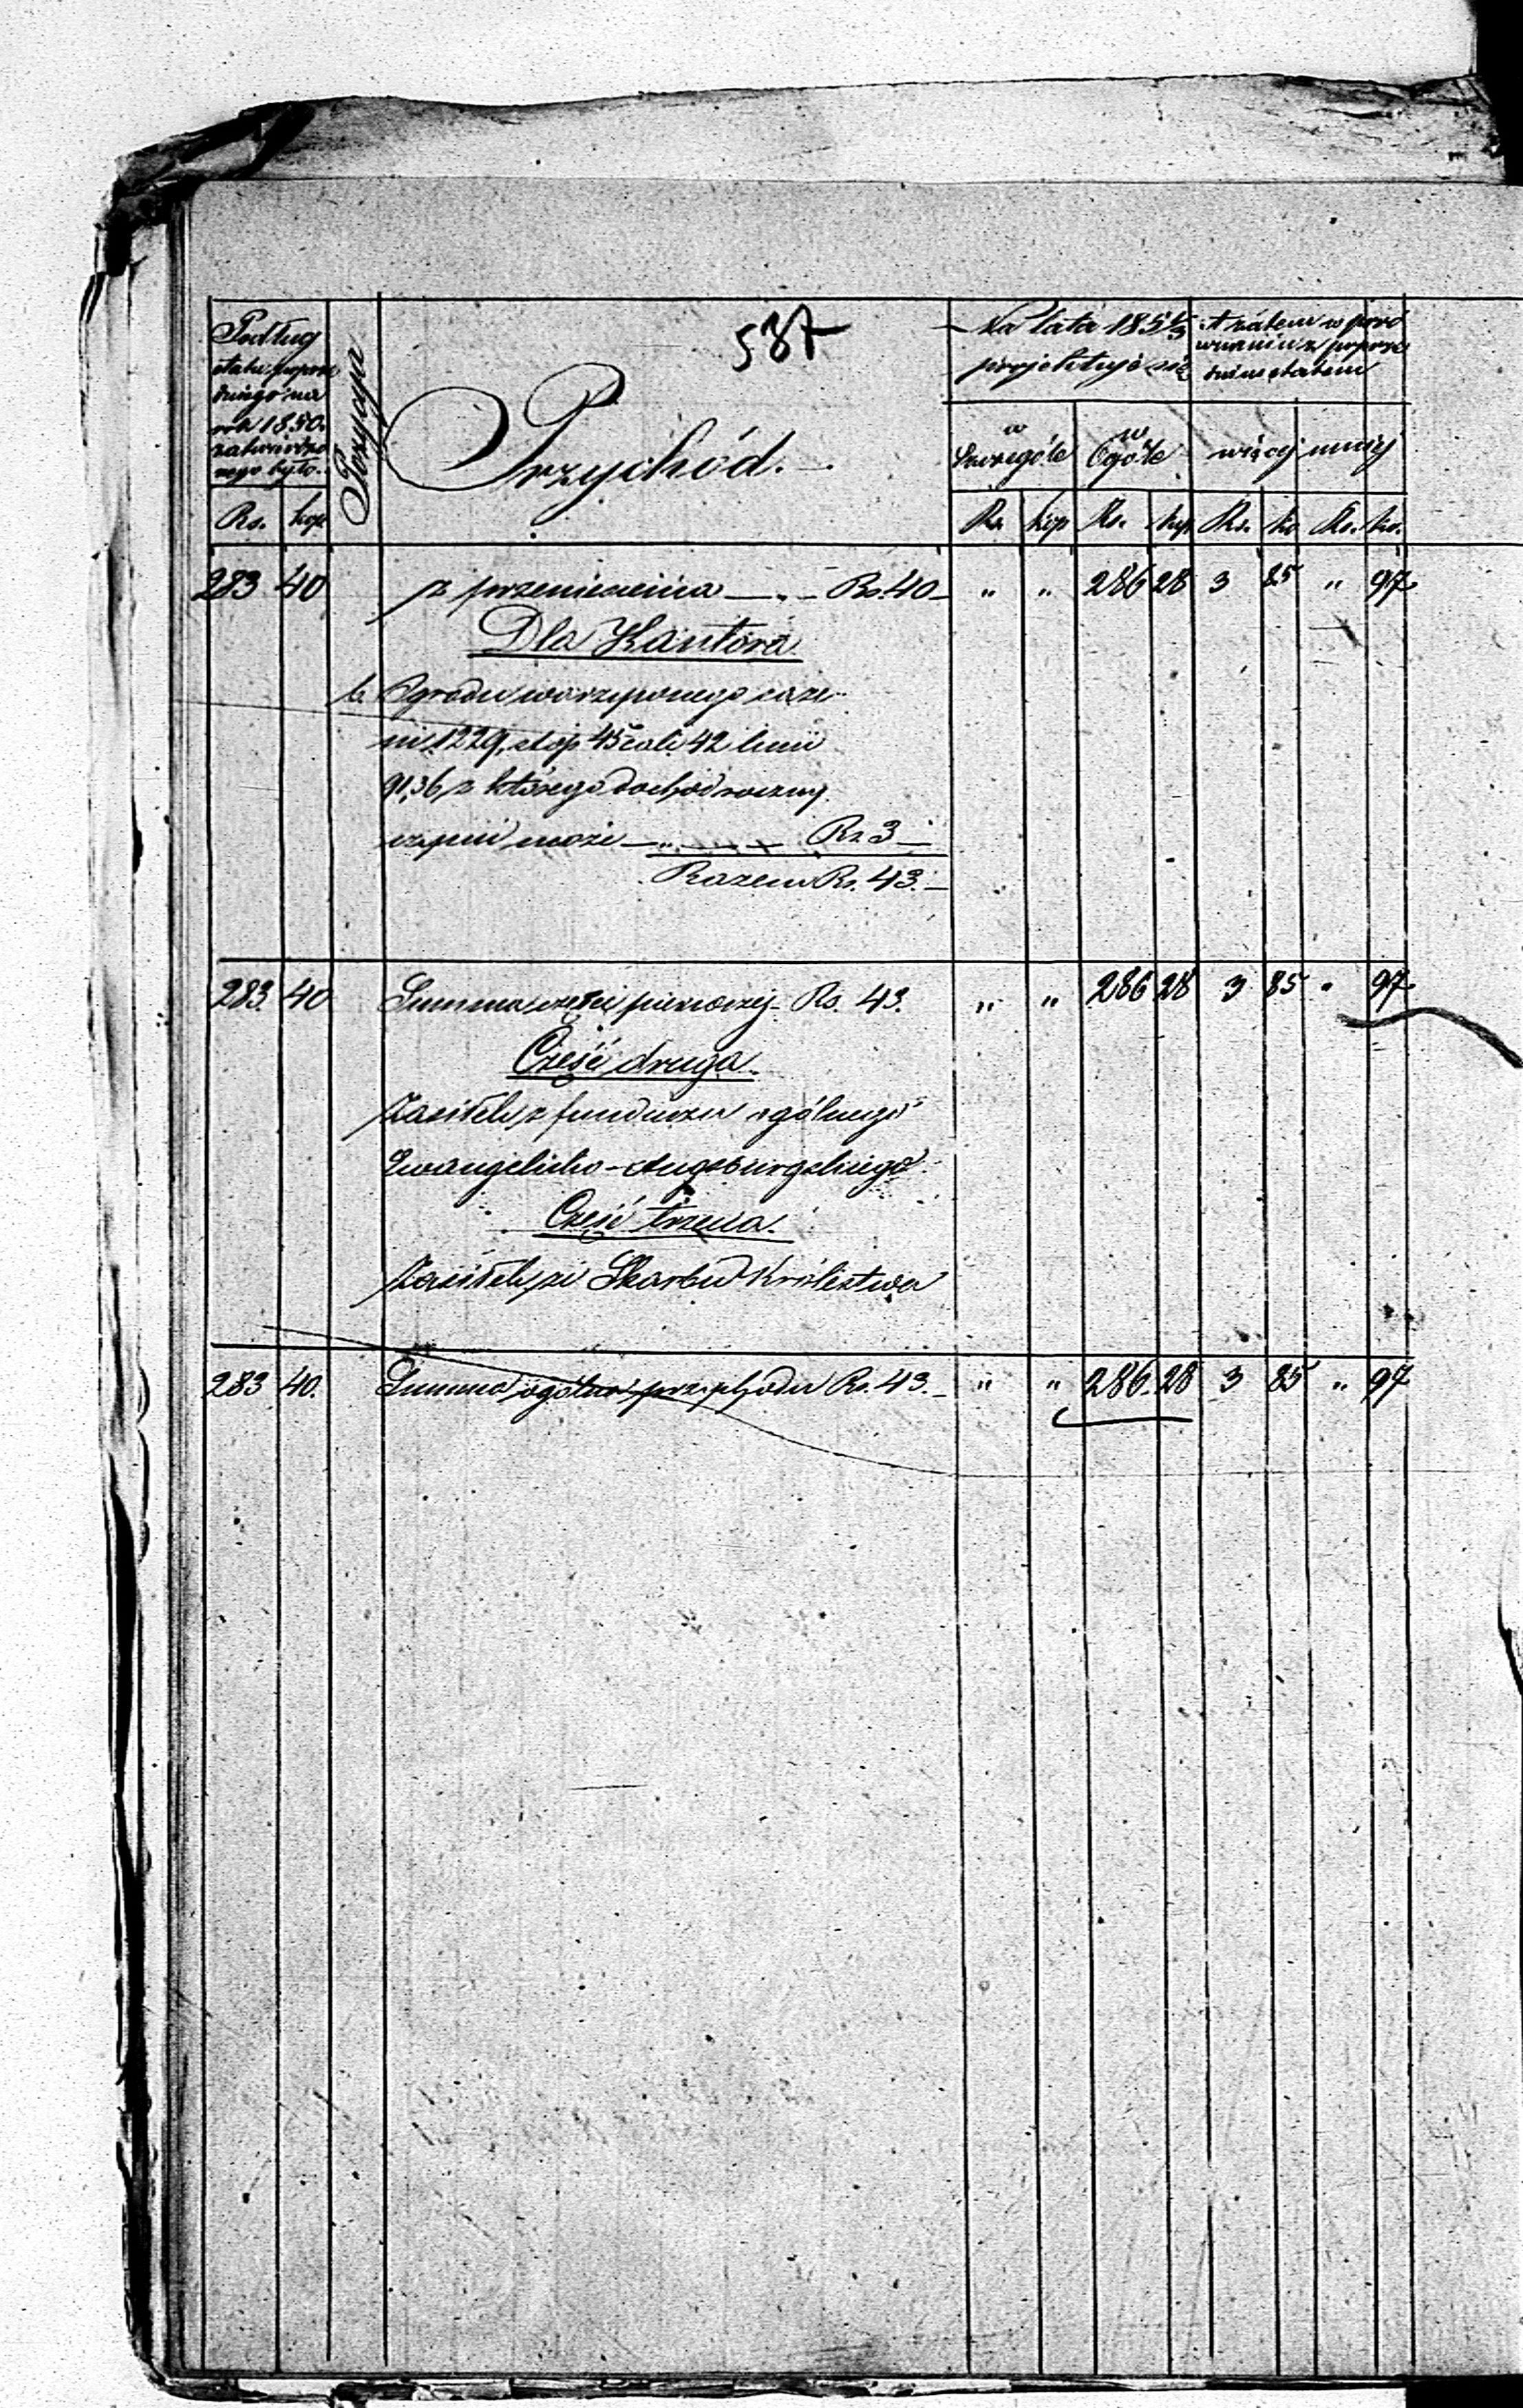 537
Podług
etatu poprze
dniego na
rok 1850
zatwierdzo
nego było.
Pozycya
Przychód.
Na lata 185 1/3
projektuje się
A zatem w poró
wnaniu z poprze
dnim etatem
w Szczególe
w Ogóle
więcej
mniej
Rs. kop
Rs. kop Rs. kop Rs. ko Rs. ko.
283 40 z przeniesienia — „ — Rs. 40 — „ „ 286 28 3 85 „ 97
Dla Kantora
b. Ogrodu warzywnego
1229, stop 45 cali 42 linii
91,36 z którego dochód roczny
czynić może — „ — Rs. 3 —
Razem Rs. 43. —
283. 40 Summa części pierwszej - Rs. 43. „ „ 286 28 3 85 „ 97
Część druga.
Zasiłek z funduszu ogólnego
Ewangelicko-Augsburgskiego
Część trzecia.
Zasiłek ze Skarbu Królestwa
283 40. Summa ogólna przychodu Rs. 43. — „ „ 286. 28 3 85 „ 97